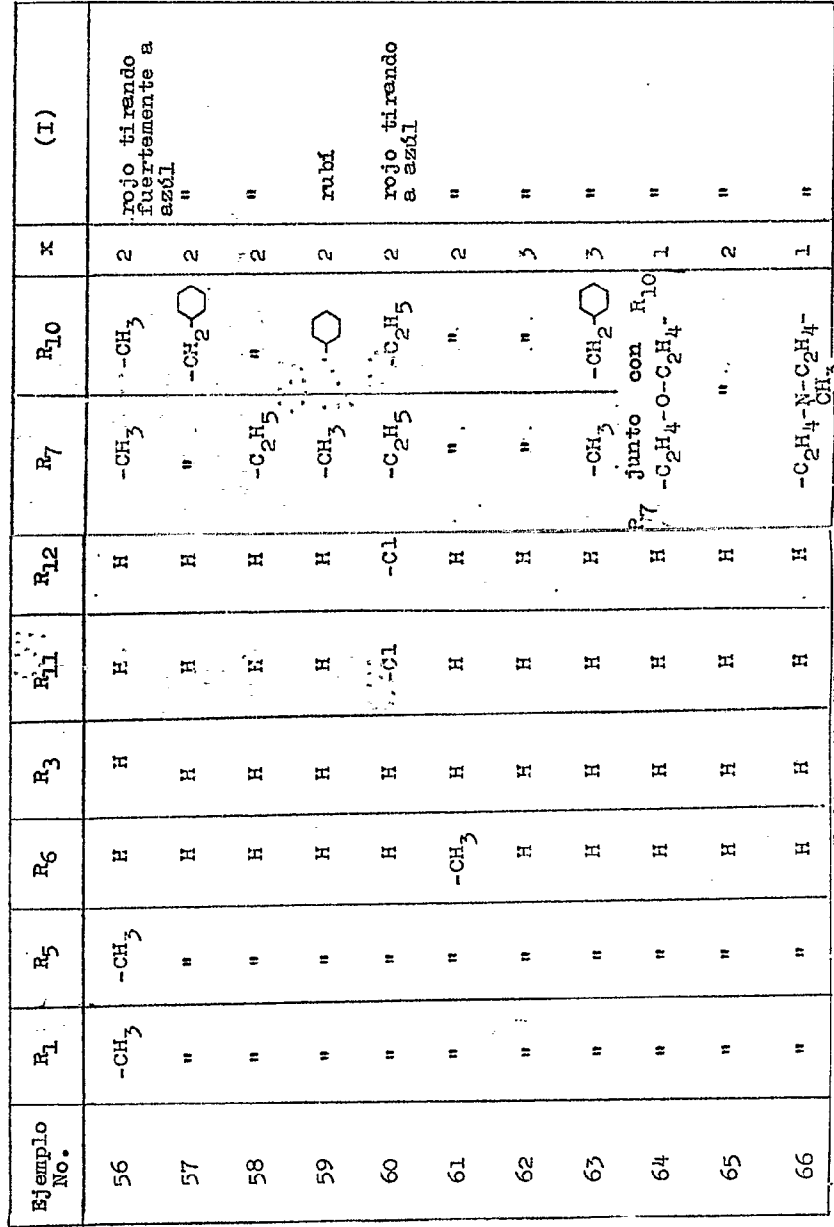 Ejemplo No. R1 R5 R6 R3 R11 R12 R7 R10 x (I)
56 -CH3 -CH3 H H H H -CH3 -CH3 2 rojo tirando fuertemente a azúl
57 " " H H H H " -CH2 2 "
58 " " H H H H -C2H5 " 2 "
59 " " H H H H -CH3 2 rubí
60 " " H H -Cl -Cl -C2H5 -C2H5 2 rojo tirando a azúl
61 " " -CH3 H H H " " 2 "
62 " " H H H H " " 3 "
63 " " H H H H -CH3 -CH2 3 "
R7 junto con R10
64 " " H H H H -C2H4-O-C2H4- 1 "
65 " " H H H H " 2 "
66 " " H H H H -C2H4-N-C2H4- 1 "
CH3